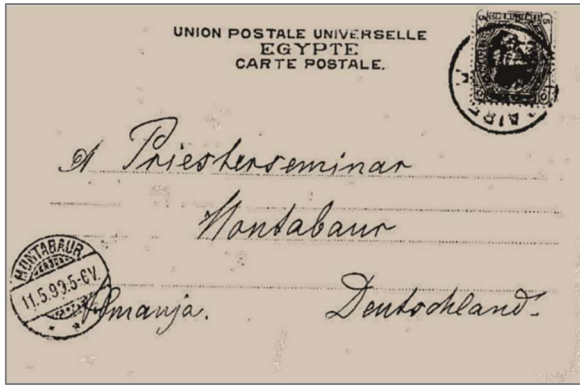 UNION POSTALE UNIVERSELLE
EGYPTE
CARTE POSTALE.
Priesterseminar
Montabaur
Deutschland.
Almanja.
MONTABAUR
11.5.99.5-6V.